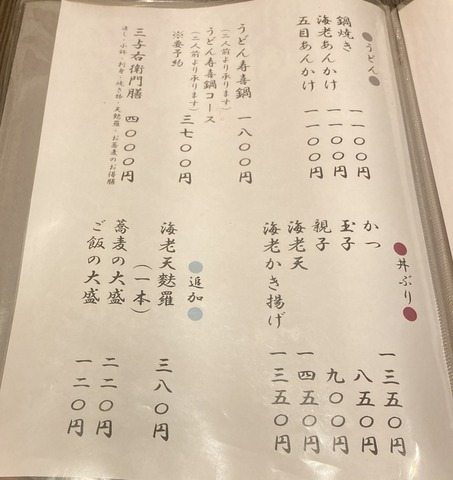 ●うどん●
鍋焼き 一一〇〇円
海老あんかけ 一一〇〇円
五目あんかけ 一一〇〇円
うどん寿喜鍋 一八〇〇円
(二人前より承ります)
うどん寿喜鍋コース 三七〇〇円
(二人前より承ります)
※要予約
三与右衛門膳 四〇〇〇円
小鉢・刺身・焼き物・天麩羅・お蕎麦のお得膳
●丼ぶり●
かつ 一三五〇円
玉子 八五〇円
親子 九〇〇円
海老天 一四五〇円
海老かき揚げ 一三五〇円
●追加●
海老天麩羅
(一本) 三八〇円
蕎麦の大盛 二二〇円
ご飯の大盛 一二〇円